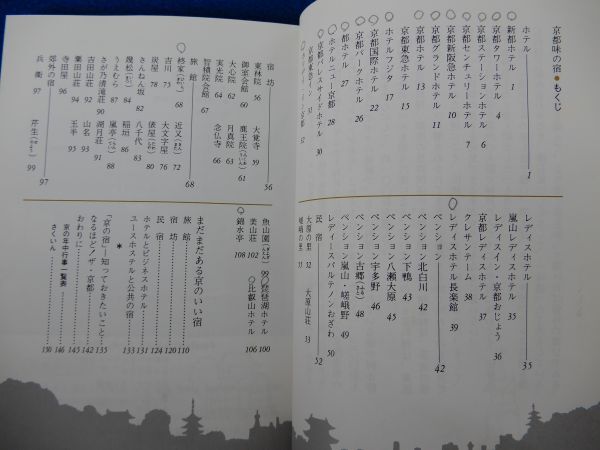 京都味の宿●もくじ
ホテル 1
新都ホテル 1
京都タワーホテル 4
京都ステーションホテル 6
京都センチュリーホテル 7
京都新阪急ホテル 10
京都グランドホテル 11
京都ホテル 13
京都東急ホテル 15
ホテルフジタ 17
京都国際ホテル 22
京都パークホテル 26
都ホテル 27
ホテルニュー京都 28
京都パレスサイドホテル 30
レディスホテル 35
嵐山レディスホテル 35
レディスイン・京都おじょう 36
京都レディスホテル 37
クレサンテーム 38
レディスホテル長楽館 39
ペンション 42
ペンション北白川 42
ペンション下鴨 43
ペンション八瀬大原 45
ペンション宇多野 46
ペンション古郷 48
ペンション嵐山・嵯峨野 49
レディースパルテノンおざわ 50
民宿 52
大原の里
大原山荘 53
宿坊 56
東林院 56
大覚寺 59
御室会館 60
鹿王院 61
大心院 62
月真院 63
実光院 64
念仏寺 66
智積院会館 67
旅館 68
柊家 68
近又 72
吉川 75
大文字屋 76
炭屋 78
俵屋 80
さんねん坂 82
八千代 83
畿松
稲垣 86
うえむら 87
嵐亭
さが乃清滝荘 90
湖月荘 91
吉田山荘 92
山名 93
粟田山荘 94
玉半 95
寺田屋 96
郊外の宿 97
兵衛 97
芹生 99
魚山園 99
琵琶湖ホテル 100
美山荘 102
比叡山ホテル 106
錦水亭 108
まだまだある京のいい宿
旅館 110
宿坊 120
民宿 124
ホテルとビジネスホテル 131
ユースホステルと公共の宿 133
＊
「京の宿」―知っておきたいこと― 135
なるほど！ザ・京都 142
おわりに 145
京の年中行事一覧表 146
さくいん 150